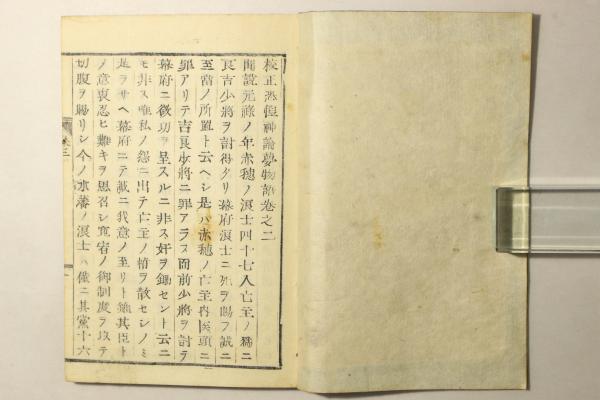 校正恐惶神論夢物語巻之二
聞説元禄ノ年赤穂ノ浪士四十七人亡主ノ為ニ
良吉少將ヲ討得タリ幕府浪士ニ死ヲ賜フ誠ニ
至當ノ所置ト云ヘシ是ハ赤穂ノ亡主内匠頭ニ
罪アリテ吉良少將ニ罪アラス而前少將ヲ討ラ
幕府ニ徴功ヲ呈スルニ非ス奸ヲ鋤セント云ニ
モ非ス唯私ノ怨ニ出テ亡主ノ情ヲ散センノミ
是ヲサヘ幕府ニテ誠ニ我意ノ至リト雖其臣ト
ノ意衷忍ヒ難キヲ思召シ寛宥ノ御制度ヲ以テ
切腹ヲ賜リシ今ノ水藩ノ浪士ハ僅ニ其黨十六